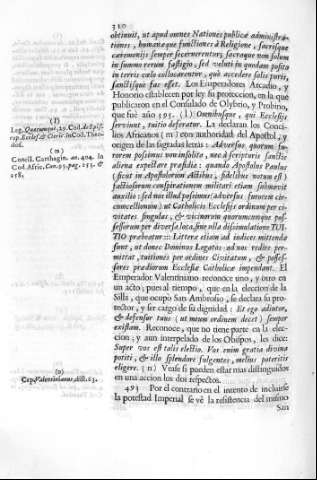 310
obtinuit, ut apud omnes Nationes publicæ administra-
tiones, humanæque functiones à Religione, sacrisque
cæremonijs semper secernerentur; sacraque non solum
in summo rerum fastigio, sed veluti in quodam posito
in terris cælo collocarentur, quò accedere solis puris,
sanctisque fas esset. Los Emperadores Arcadio, y
Honorio establecen por ley su proteccion, en la que
publicaron en el Consulado de Olybrio, y Probino,
que fuè año 395. (l) Omnibusque, qui Ecclesijs
serviunt, tuitio deferatur. La declaran los Conci-
lios Africanos (m) con authoridad del Apostol, y
origen de las sagradas letras: Adversus quorum fu-
rorem possimus non insolita, nec à scripturis sanctis
aliena expellere præsidia: quando Apostolus Paulus
(sicut in Apostolorum Actibus, fidelibus notum est)
factiosorum conspirationem militari etiam submovit
auxilio: sed nos illud poscimus (adversus furorem cir-
cuncellionum) ut Catholicis Ecclesijs ordinum per ci-
vitates singulas, & vicinarum quorumcunque pos-
sessorum per diversa loca, sine ulla dissimulatione TUI-
TIO præbeatur::: Litteræ etiam ad iudices mittendæ
sunt, ut donec Dominus Legatos ad nos redire per-
mittat, tuitionem per ordines Civitatum, & posses-
sores prædiorum Ecclesiæ Catholicæ impendant. El
Emperador Valentiniano reconoce uno, y otro en
un acto; pues al tiempo, que en la eleccion de la
Silla, que ocupò San Ambrosio, se declara su pro-
tector, y ser cargo de su dignidad: Et ego adiutor,
& defensor tuus (ut meum ordinem decet) semper
existam. Reconoce, que no tiene parte en la elec-
cion; y aun interpelado de los Obispos, les dice:
Super vos est talis electio. Vos enim gratia divina
potiti, & illo splendore fulgentes, melius poteritis
eligere. (n) Vease si pueden estàr mas distinguidos
en una accion los dos respectos.
493 Por el contrario en el intento de incluirse
la potestad Imperial se vè la resistencia del mismo
San
(l)
Leg. Quæcumque, 29. Cod. de Epis-
cop. Eccles. & Cleric. in Cod. Theo-
dos.
(m)
Concil. Carthagin. an. 404. in
Cod. Afric. Can. 93. pag. 153. &
158.
(n)
Cap. Valentinianus, dist. 63.